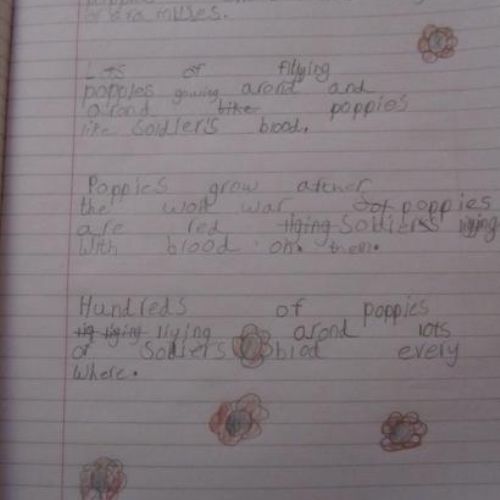 Lots of fillying
poppies gowing arond and
arond bike poppies
like Soldier's blood.
Poppies grow
the wolt war poppies
are red liging Soldiers
with blood on them.
Hundreds of poppies
lig liging liying arond lots
of Soldiers blod every
Where.